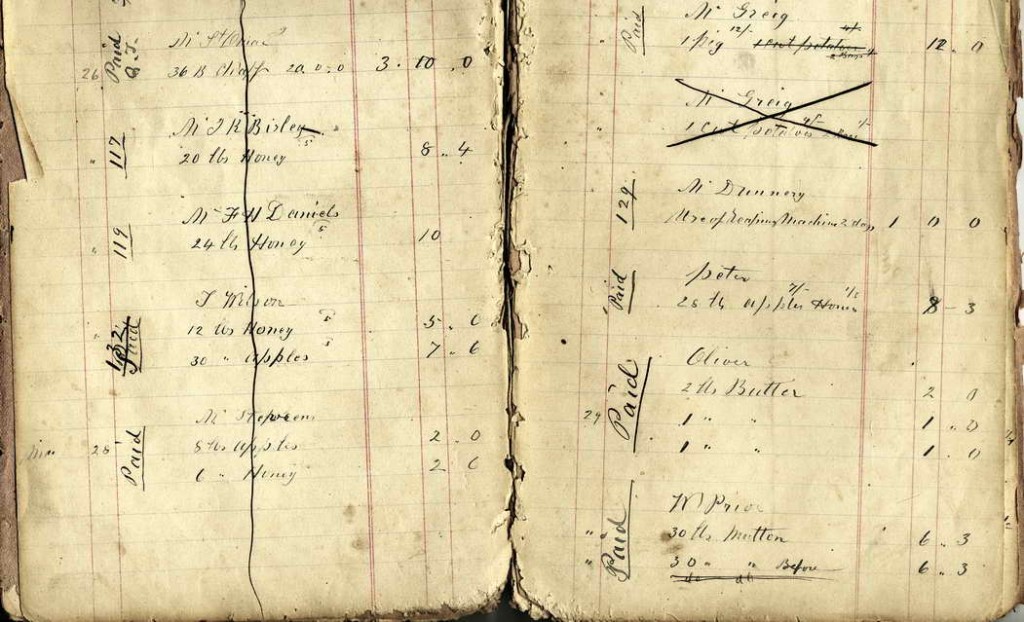 Paid
26
36 B Chaff 20.0.0 3 . 10 . 0
117
Mr J R Bisley
20 lbs Honey 5 8 .. 4
119
Mr F H Daniels
24 lb Honey 5 10
J Wilson
132
Paid
12 lbs Honey 5 5 . 0
30 " apples 3 7 .. 6
Mr Stephens
28
Paid
8 lbs apples 2 . 0
6 " Honey 2 6
Paid
Mr Greig
1 pig 12/- 1 cwt potatoes 12 . 0
Mr Greig
1 cwt potatoes
129
Mr Dunnery
Use of Reaping Machine 2 days 1 0 0
Paid
Peter
28 lb apples 8 - 3
Oliver
29
Paid
2 lbs Butter 2 0
1 " " 1 . 0
1 " " 1 . 0
W Prior
" Paid
30 lbs Mutton 6 .. 3
" 30 " " Before 6 .. 3
do do